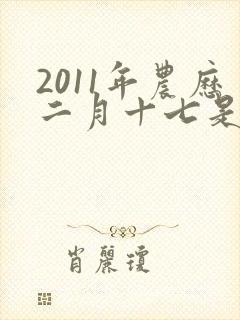 2011年農歷
二月十七是
肖麗瓊